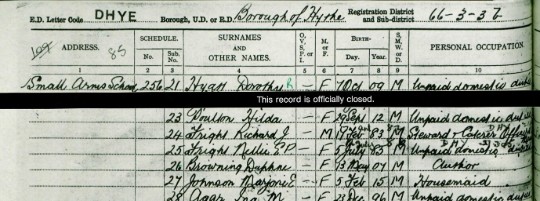 E.D. Letter Code DHYE Borough, U.D. or R.D. Borough of Hythe Registration District and Sub-district 66-3-37
ADDRESS. 85 SCHEDULE. No. Sub. No. SURNAMES AND OTHER NAMES. O., V., S., P. or I. M. or F. BIRTH- Day. Year. S., M., W. or D. PERSONAL OCCUPATION.
1 2 3 4 5 6 7 8 9 10
Small Arms School 256 21 Hyatt Dorothy R – F 7 Oct 09 M Unpaid domestic duties
This record is officially closed.
23 Houlton Hilda – F 29 Sep 12 M Unpaid domestic duties
24 Fright Richard J – M Feb 83 M Steward & Caterer Officers
25 Fright Nellie E P – F 5 July 85 M Unpaid domestic duties
26 Browning Daphne – F 13 May 07 M Author
27 Johnson Marjorie E – F 5 Feb 15 M Housemaid
28 Agar Ina M – F 23 Dec 96 M Unpaid domestic duties